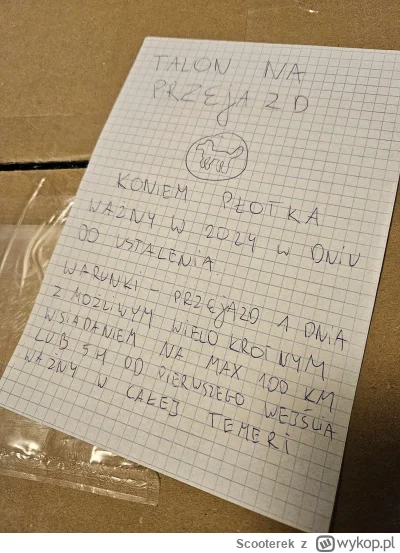 TALON NA
PRZEJAZD
KONIEM PŁOTKA
WAŻNY W 2024 W DNIU
DO USTALENIA
WARUNKI - PRZEJAZD 1 DNIA
Z MOŻLIWYM WIELOKROTNYM
WSIADANIEM NA MAX 100 KM
LUB 5H OD PIERWSZEGO WEJŚCIA
WAŻNY W CAŁEJ TEMERI
Scooterek z wykop.pl